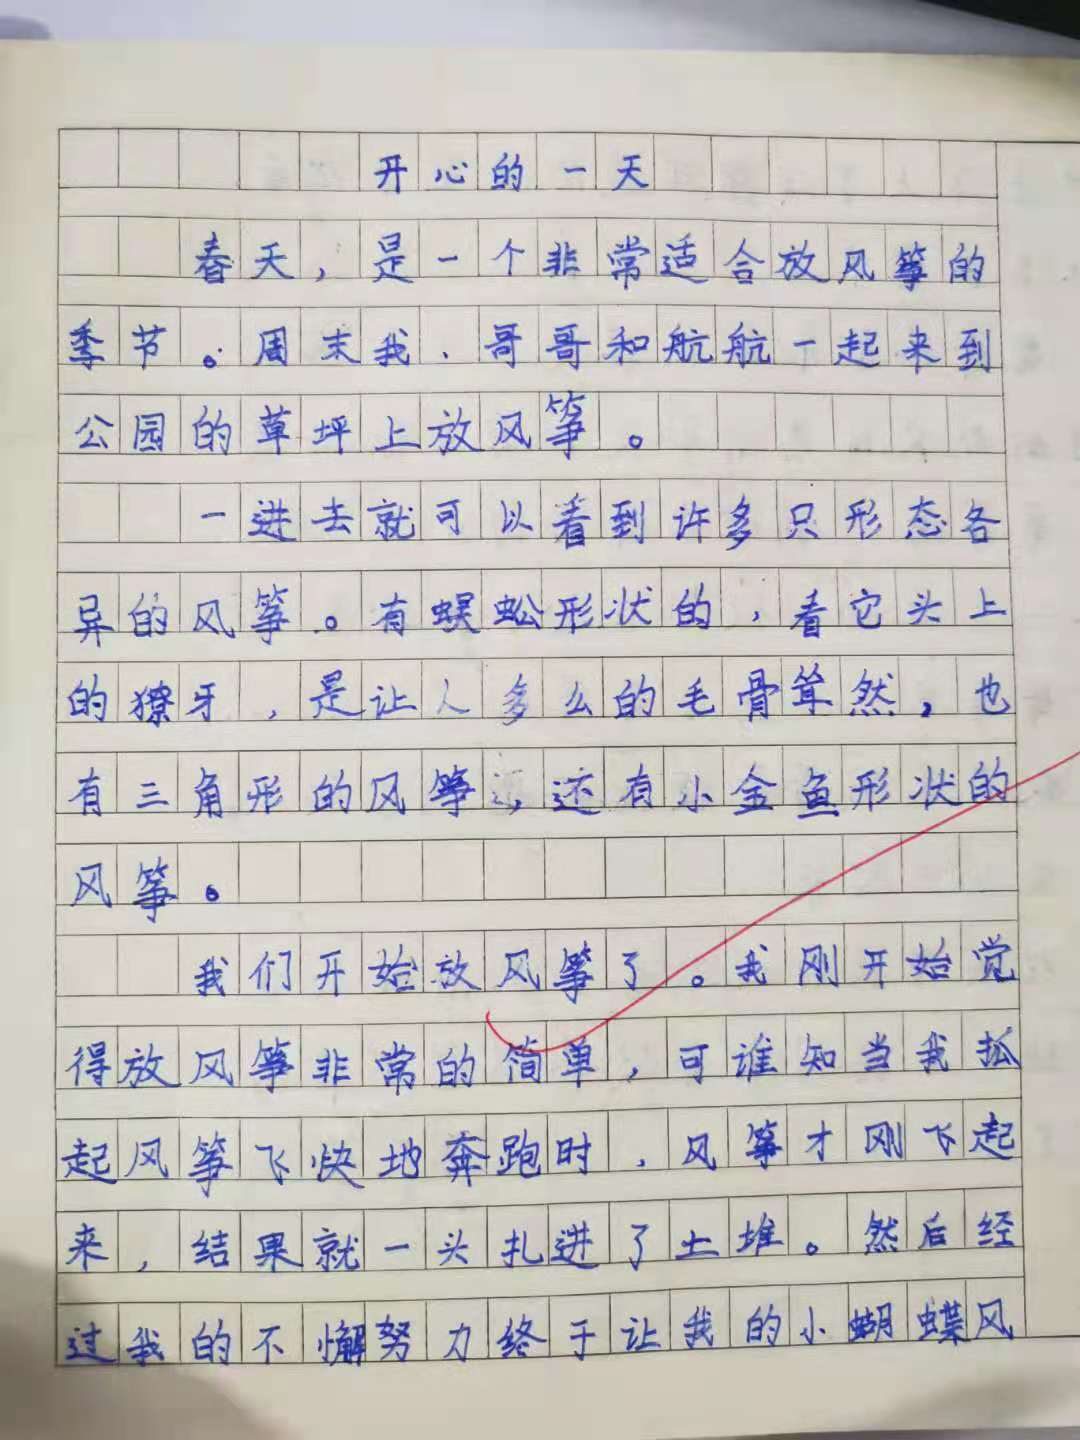 开心的一天
春天，是一个非常适合放风筝的
季节。周末我、哥哥和航航一起来到
公园的草坪上放风筝。
一进去就可以看到许多只形态各
异的风筝。有蜈蚣形状的，看它头上
的獠牙，是让人多么的毛骨耸然，也
有三角形的风筝，还有小金鱼形状的
风筝。
我们开始放风筝了。我刚开始觉
得放风筝非常的简单，可谁知当我抓
起风筝飞快地奔跑时，风筝才刚飞起
来，结果就一头扎进了土堆。然后经
过我的不懈努力终于让我的小蝴蝶风